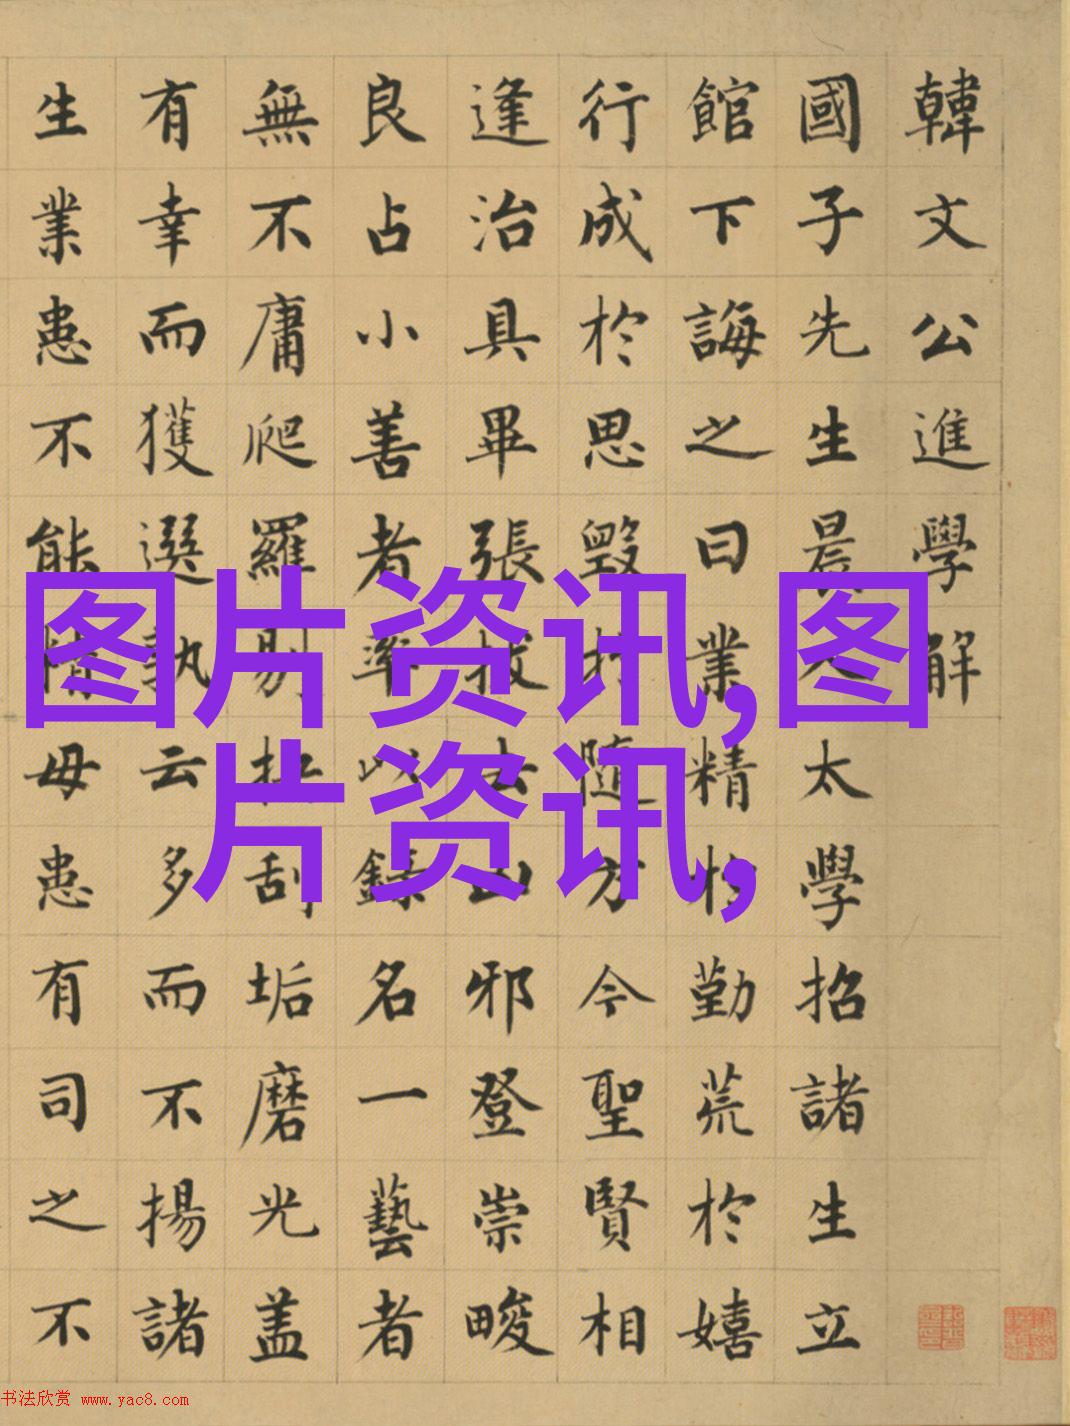 韓文公進學解
國子先生晨入太學招諸生立
館下誨之曰業精於勤荒於嬉
行成於思毀於隨方今聖賢相
逢治具畢張拔去凶邪登崇畯
良占小善者率以錄名一藝者
無不庸爬羅剔抉刮垢磨光盖
有幸而獲選孰云多而不揚諸
生業患不能精毋患有司之不
图片资讯,图
片资讯,
书法欣赏 www.yac8.com